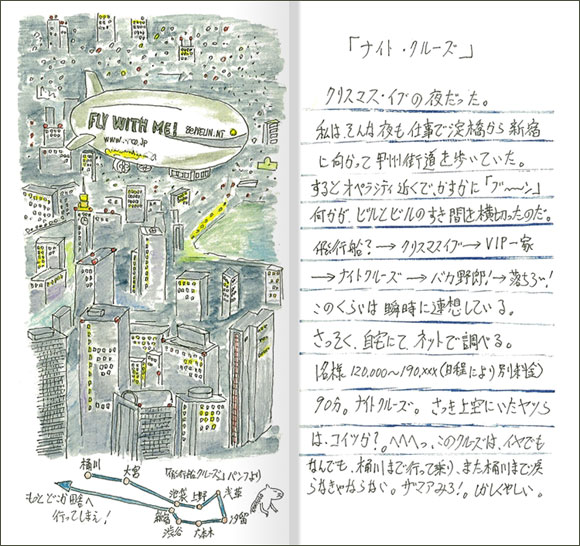 FLY WITH ME!
桶川
大宮
「飛行船クルーズ」パンフより
池袋
上野
浅草
新宿
渋谷
六本木
汐留
もっとどっか田舎へ
行ってしまえ!
「ナイト・クルーズ」
クリスマス・イブの夜だった。
私は、そんな夜も仕事で淀橋から新宿
に向かって甲州街道を歩いていた。
するとオペラシティ近くで、かすかに「ブ〜〜ン」
何かが、ビルとビルのすき間を横切ったのだ。
飛行船?→クリスマスイブ→VIP一家
→ナイトクルーズ→バカ野郎!→落ちろ!
このくらいは瞬時に連想している。
さっそく、自宅にて、ネットで調べる。
1名様 120,000〜190,xxx(日程により別料金)
90分。ナイトクルーズ。さっき上空にいたヤツら
は、コイツか?。へへへっ、このクルーズは、イヤでも
なんでも、桶川まで行って乗り、また桶川まで戻
らなきゃならない。ザマアみろ!。しかしくやしい。